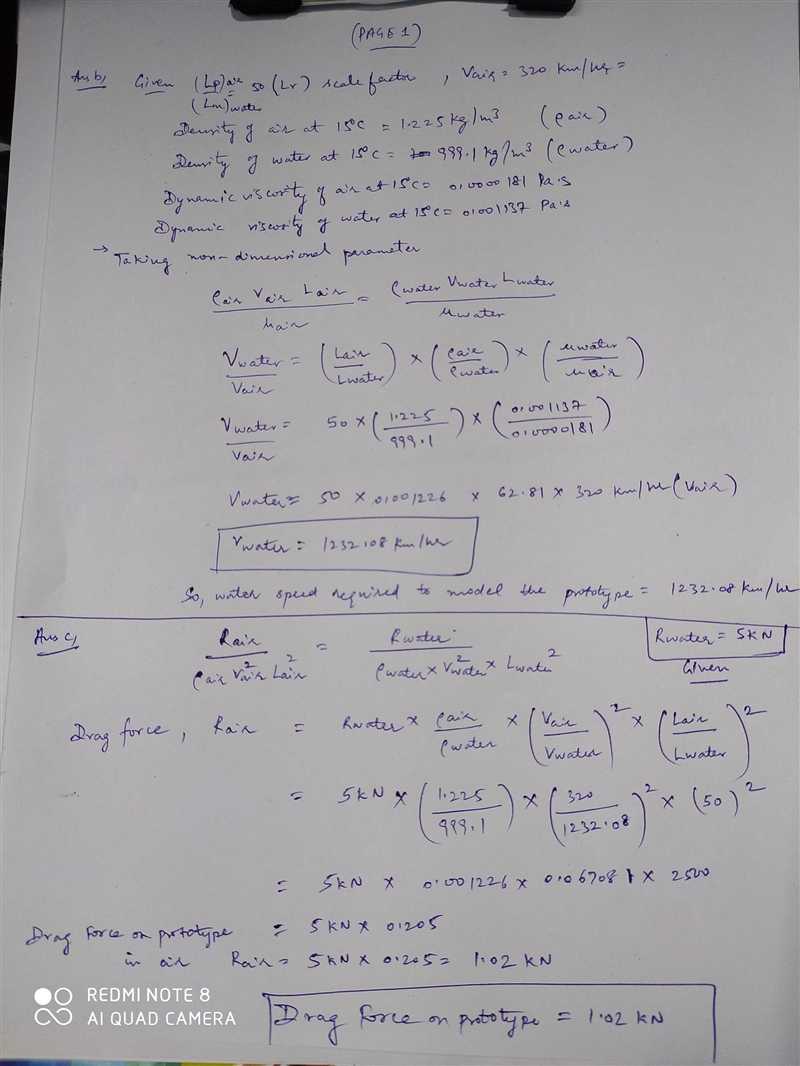 (PAGE 1)
Ans b, Given (Lp)air / (Lm)water = 50 (Lr) scale factor , Vair = 320 km/hr =
Density of air at 15°C = 1.225 kg/m³ (ρair)
Density of water at 15°C = 999.1 kg/m³ (ρwater)
Dynamic viscosity of air at 15°C = 0.0000181 Pa.s
Dynamic viscosity of water at 15°C = 0.001137 Pa.s
→ Taking non-dimensional parameter
ρair Vair Lair / μair = ρwater Vwater Lwater / μwater
Vwater / Vair = (Lair / Lwater) × (ρair / ρwater) × (μwater / μair)
Vwater / Vair = 50 × (1.225 / 999.1) × (0.001137 / 0.0000181)
Vwater = 50 × 0.001226 × 62.81 × 320 km/hr (Vair)
Vwater = 1232.08 km/hr
So, water speed required to model the prototype = 1232.08 km/hr
Ans c, Rair / ρair Vair² Lair² = Rwater / ρwater × Vwater² × Lwater² Rwater = 5KN
Given
Drag force, Rair = Rwater × ρair / ρwater × (Vair / Vwater)² × (Lair / Lwater)²
= 5KN × (1.225 / 999.1) × (320 / 1232.08)² × (50)²
= 5KN × 0.001226 × 0.06708 × 2500
Drag force on prototype = 5 KN × 0.205
in air Rair = 5KN × 0.205 = 1.02 KN
Drag force on prototype = 1.02 KN
REDMI NOTE 8
AI QUAD CAMERA